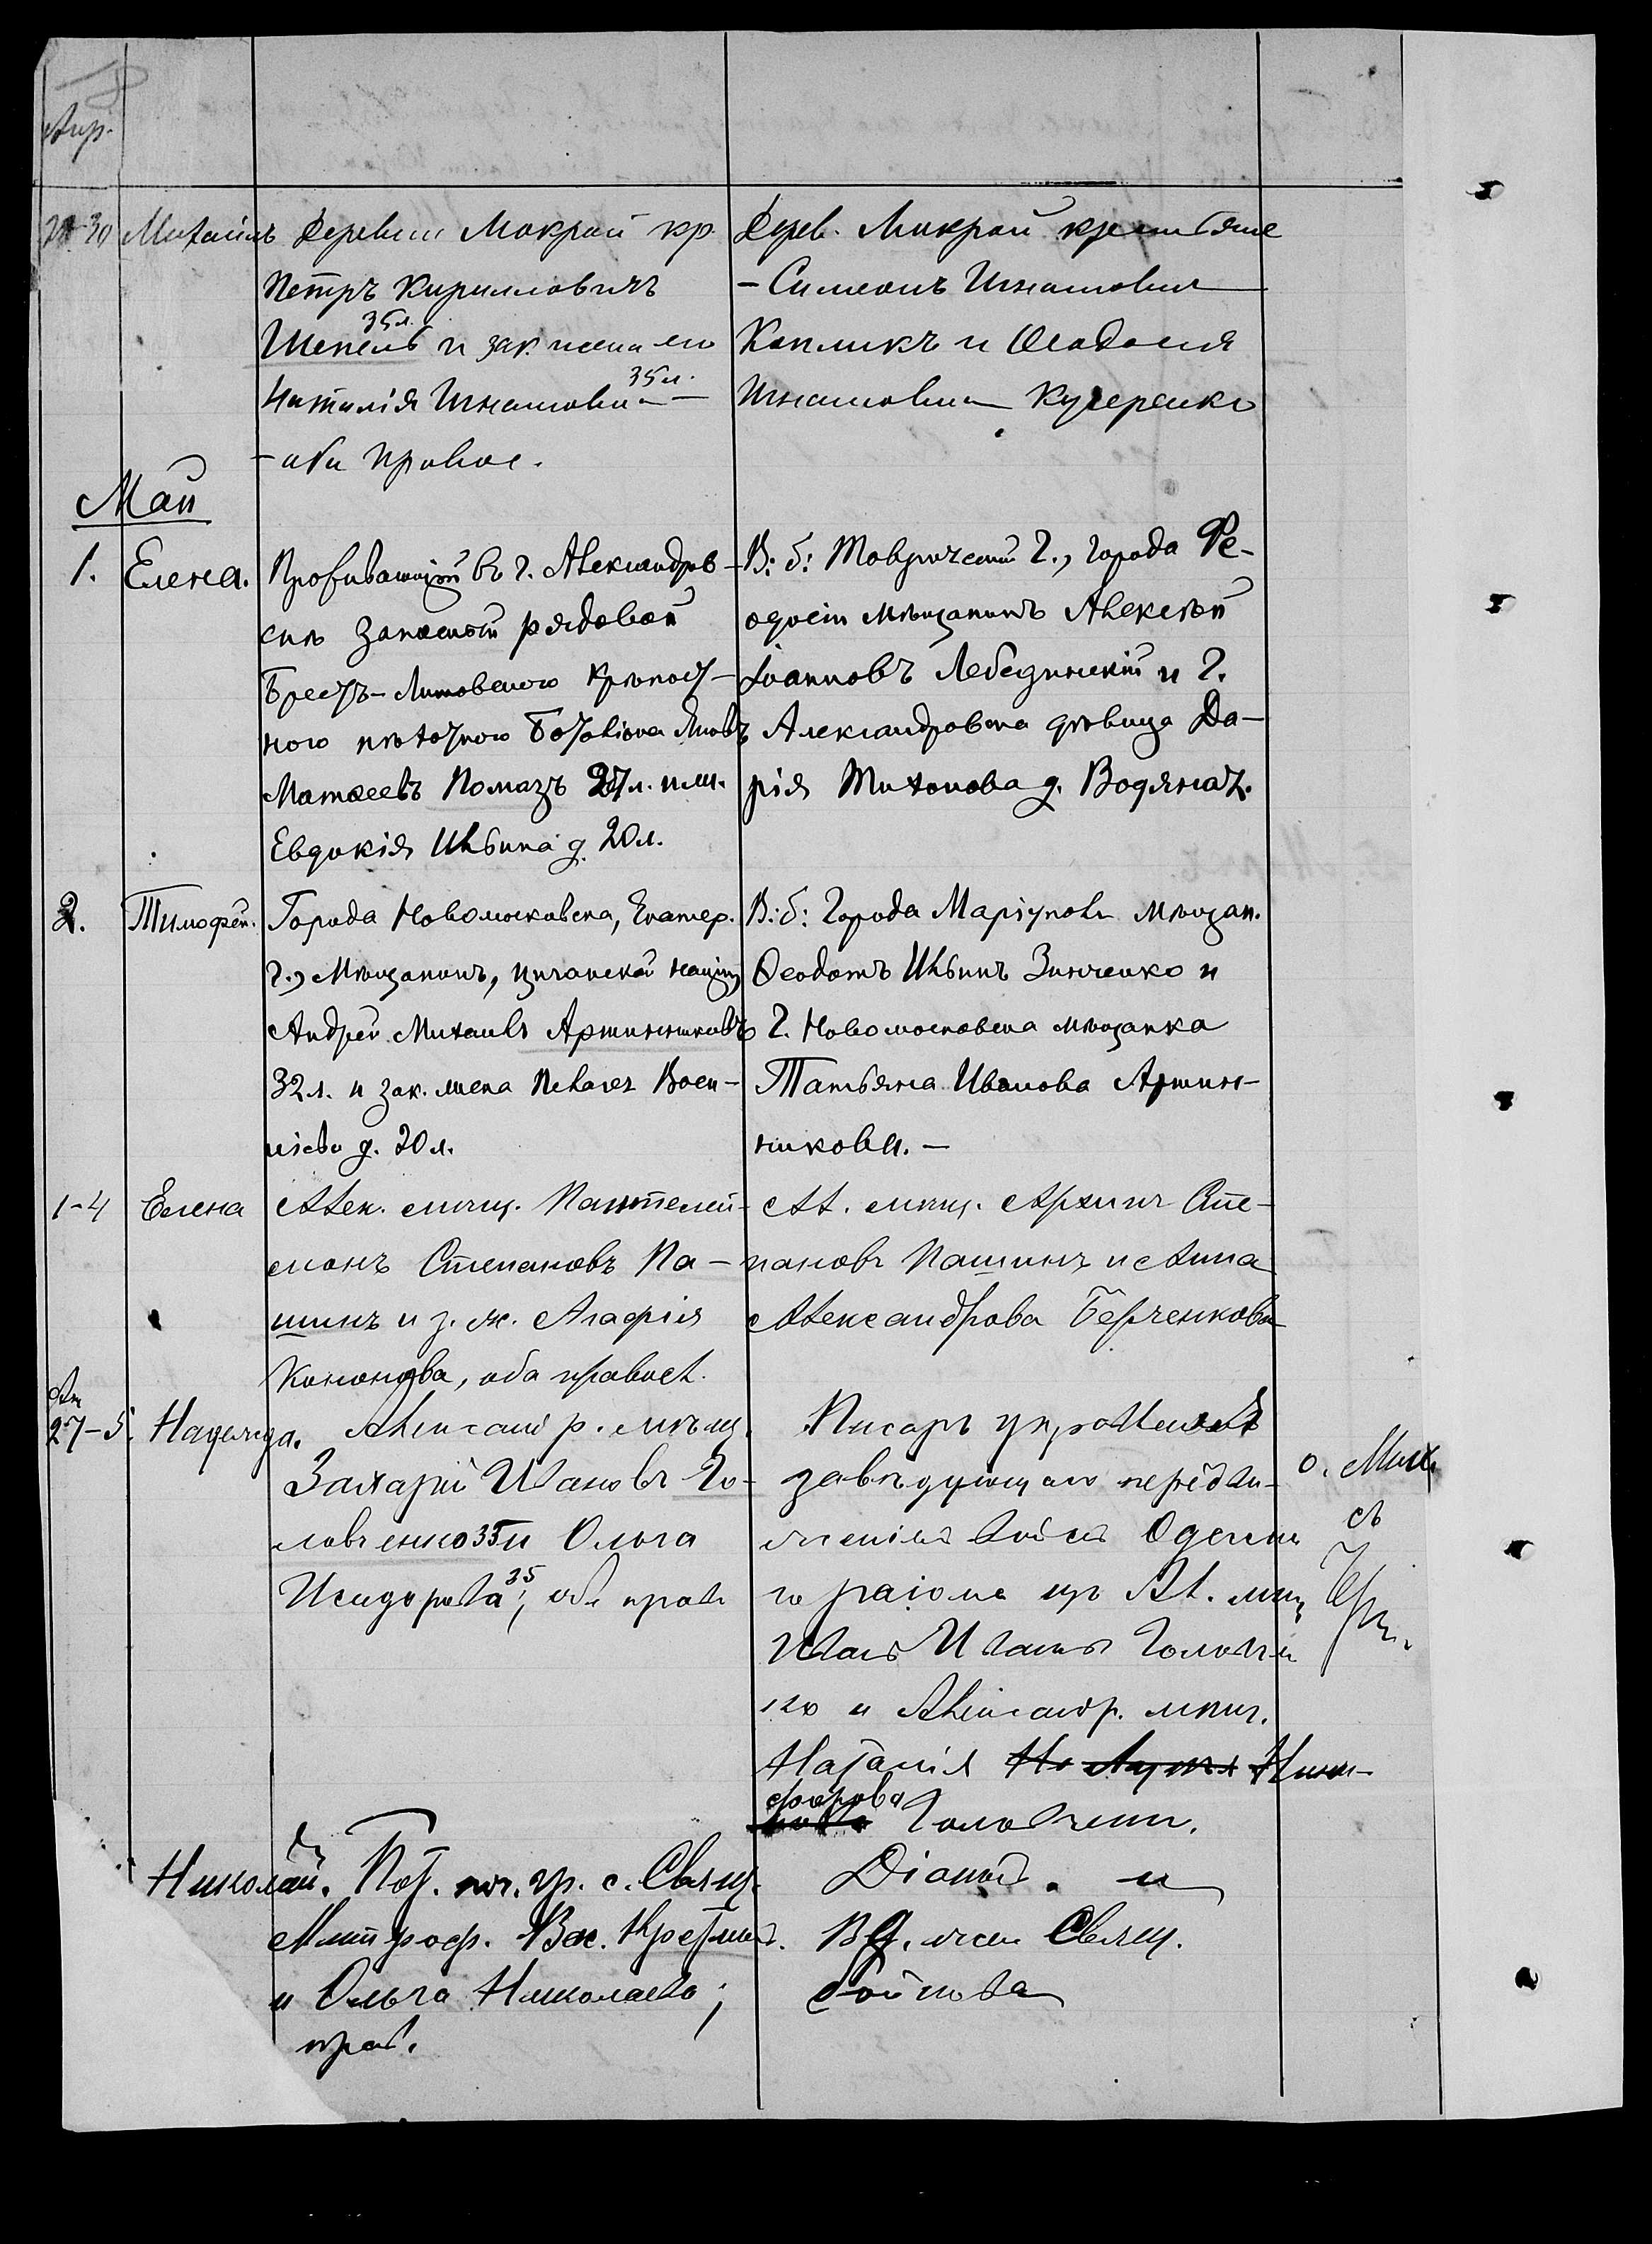 Апр.
30 Михаилъ Деревни Мокрой кр.
Петръ Кирилловичъ
35 л.
Шепель и зак. жена его
35 л.
Наталія Игнатовна
- оба правос.
Дерев. Мокрой крестьяне
- Симеонъ Игнатович
и Феодосія
Игнатовна Кучеренко
Май
1. Елена.
Проживающій въ г. Александров-
скѣ запасный рядовой
Брестъ-Литовскаго крѣпост-
ного пѣхотного баталіона Яковъ
Матѳеевъ Помазъ 27 л. и ж.
Евдокія Ильина д. 20 л.
В: б: Таврической г., города Ѳе-
одосіи мѣщанинъ Алексѣй
Іоанновъ Лебединскій и г.
Александровска дѣвица Да-
рія Тихонова д. Водяная.
2. Тимофей.
Города Новомосковска, Екатер.
г., мѣщанинъ, цыганской націи,
Андрей Михаилъ Артинниковъ
32 л. и зак. жена
д. 20 л.
В: б: Города Маріуполя мѣщан.
Ѳеодотъ Ильинъ Зинченко и
г. Новомосковска мѣщанка
Татьяна Иванова Артин-
никова. -
1-4 Елена
Алек. мѣщ. Пантелей-
монъ Степановъ Па-
шинъ и з. ж. Агафія
Кононова, оба правосл.
Ал. мѣщ. Архипъ Сте-
пановъ Пашинъ и Анна
Александрова Берченкова
27-5. Надежда.
Александр. мѣщ.
Захарій Ивановъ Го-
ловченко 35 и Ольга
Исидорова 35; оба прав.
Писарь управленія
завѣдующаго передви-
женіемъ войскъ Одесска
го раіона изъ Ал. мѣщ.
Иванъ Ивановъ Головчен
ко и Александр. мѣщ.
Наталія Ники-
форова
Головченко.
о. Мих.
съ
Николай.
Пот. поч. гр. с. Свящ.
Митроф. Вас.
и Ольга Николаева;
прав.
Діаконъ. и
Вд. жен. Свящ.
Бойкова